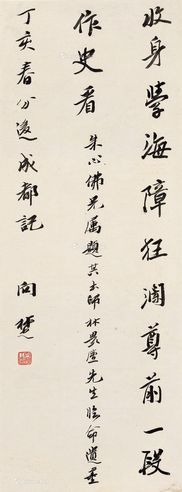 收身學海障狂瀾尊前一段
作史看 朱心佛兄屬題其太師林畏廬先生臨命遺墨
丁亥春分後成都記 向楚